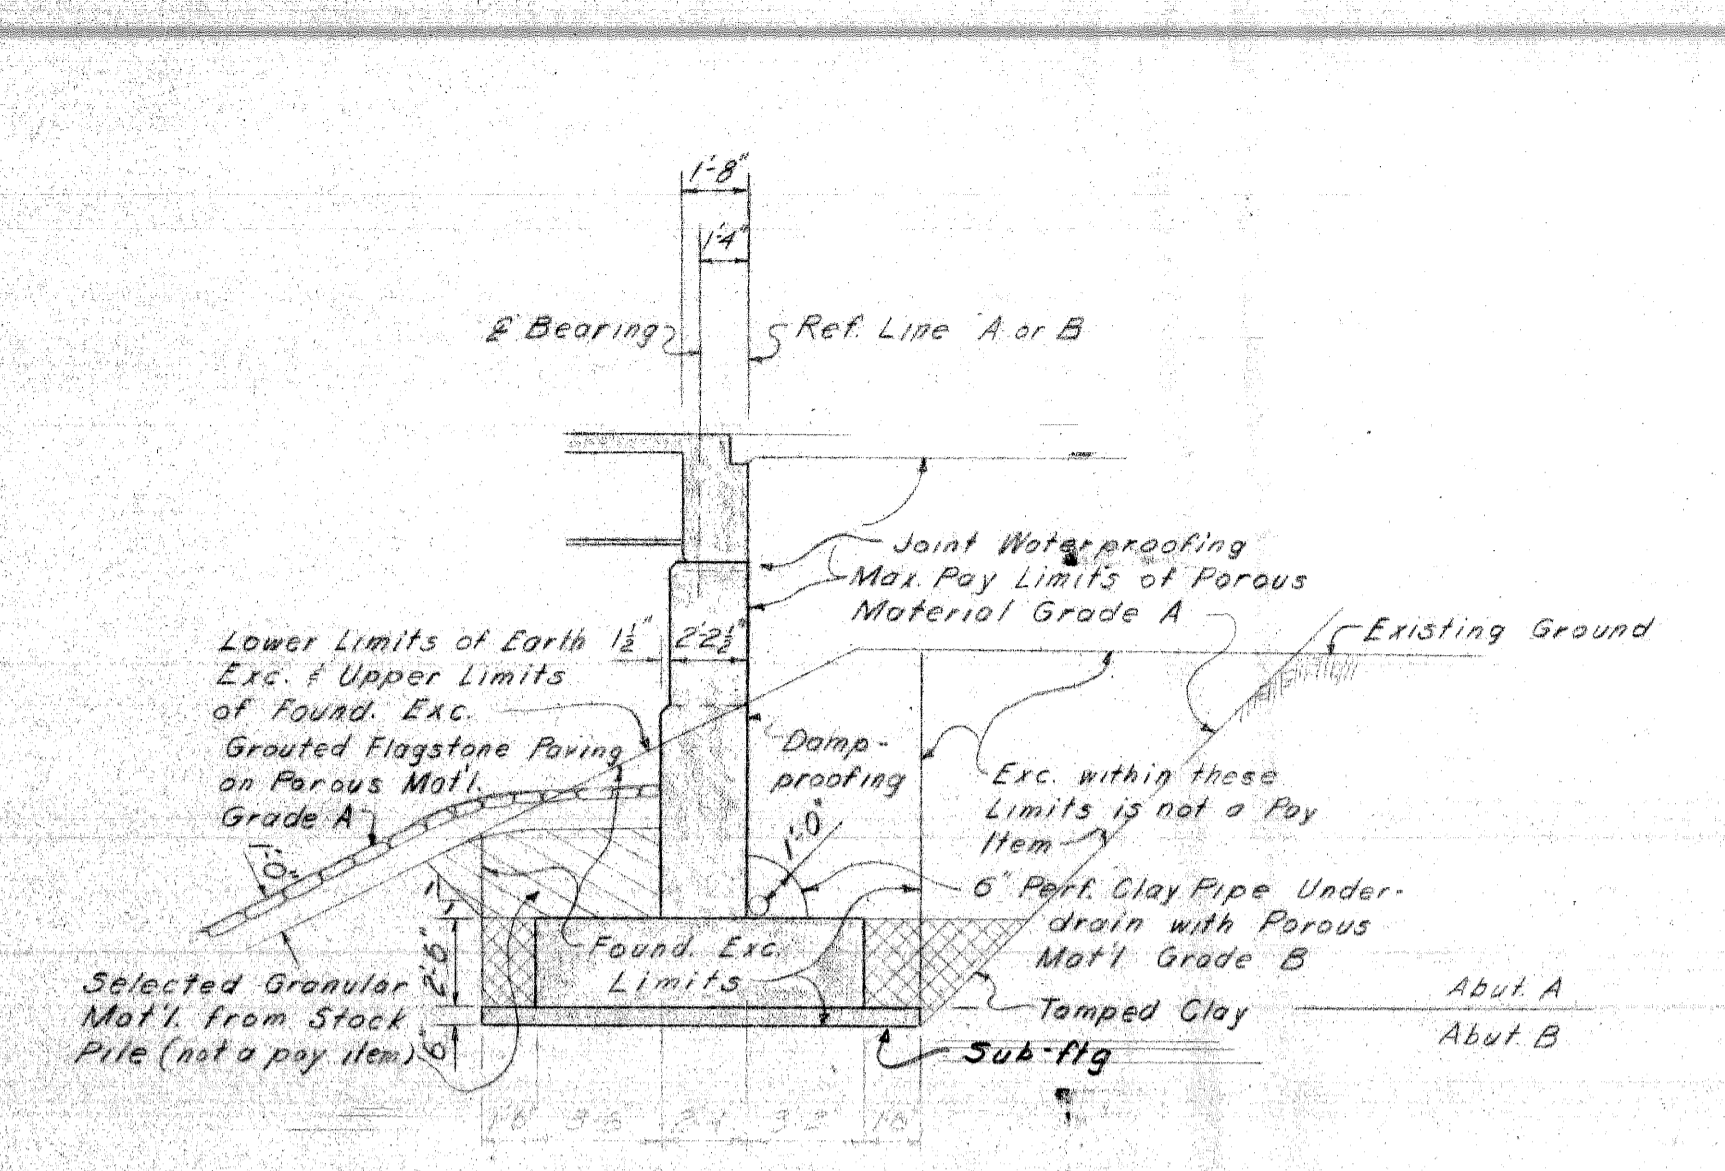 1'-8"
1'-4"
℄ Bearing
Ref. Line A or B
Joint Waterproofing
Max. Pay Limits of Porous
Material Grade A
Existing Ground
Lower Limits of Earth
Exc. & Upper Limits
of Found. Exc.
1½"
2'-2½"
Grouted Flagstone Paving
on Porous Mat'l.
Grade A
Damp-
proofing
Exc. within these
Limits is not a Pay
Item
1'-0"
1'-0"
6" Perf. Clay Pipe Under-
drain with Porous
Mat'l Grade B
Found. Exc.
Limits
2'-6"
Selected Granular
Mat'l. from Stock
Pile (not a pay item)
6"
Tamped Clay
Abut. A
Abut. B
Sub-ftg
1'-6"
2'-4"
3'-2"
1'-6"